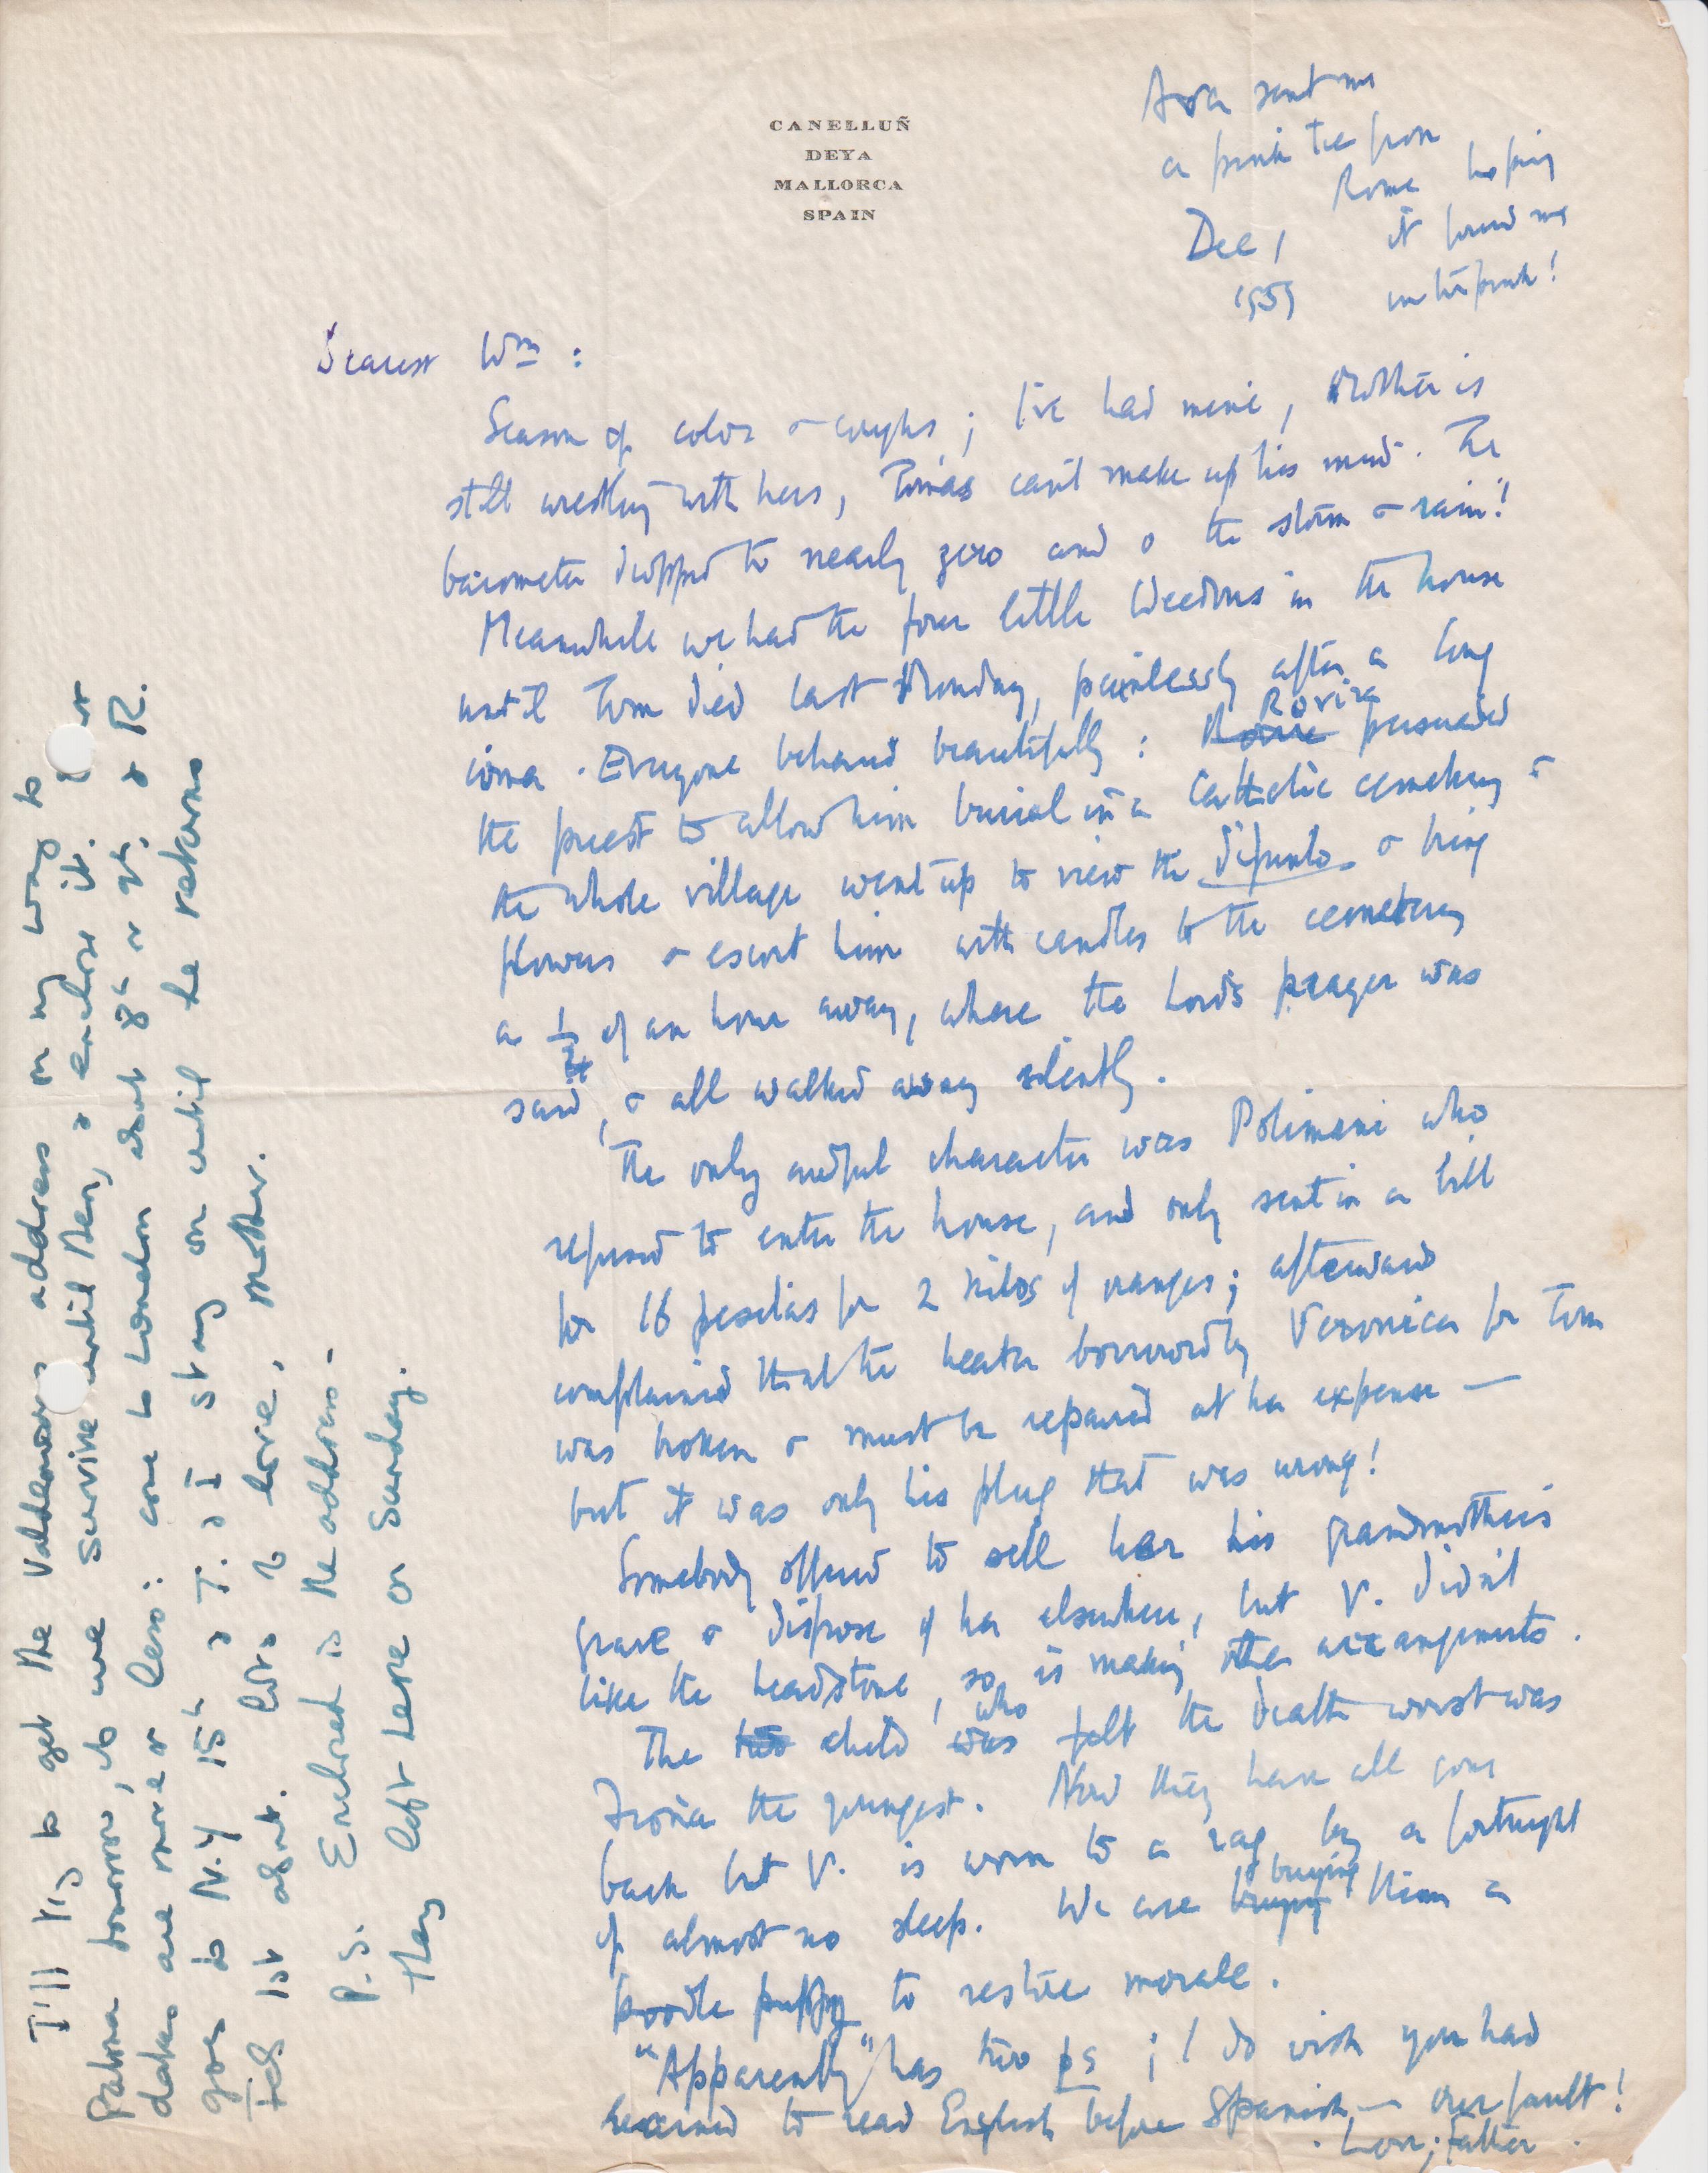 CANELLUÑ
DEYA
MALLORCA
SPAIN
Ava sent me
a pink tie from
Rome hoping
it found me
in the pink!
Dec 1
1959
Dearest Wm:
Season of colds & coughs; I've had mine, Mother is
still wrestling with hers, Tomás can't make up his mind. The
barometer dropped to nearly zero and o the storm & rain!
Meanwhile we had the four little Weedons in the house
until Tom died last Monday, painlessly after a long
coma. Everyone behaved beautifully: Rovira persuaded
the priest to allow him burial in a Catholic cemetery &
the whole village went up to view the difunto & bring
flowers & escort him with candles to the cemetery
a ½ of an hour away, where the Lord's prayer was
said, & all walked away silently.
The only awful character was Polimani who
refused to enter the house, and only sent in a bill
for 16 pesetas for 2 kilos of oranges; afterward
complained that the heater borrowed by Veronica for Tom
was broken & must be repaired at her expense —
but it was only his plug that was wrong!
Somebody offered to sell her his grandmother's
grave & dispose of her elsewhere, but V. didn't
like the headstone, so is making other arrangements.
The child who felt the death worst was
the youngest. Now they have all gone
back but V. is worn to a rag by a fortnight
of almost no sleep. We are buying them a
poodle puppy to restore morale.
"Apparently" has two ps; I do wish you had
learned to read English before Spanish — our fault!
. Love; Father .
I'll try to get the Valldemosa address on my way to
Palma tomorrow, if we survive until then, & enclose it. Our
dates are more or less: come to London about 8th or 9th, & R.
goes to N.Y 15th & T. & I stay on until he returns
Feb 1st about. Lots of love, Mother.
P.S. Enclosed is the address –
they left here on Sunday.